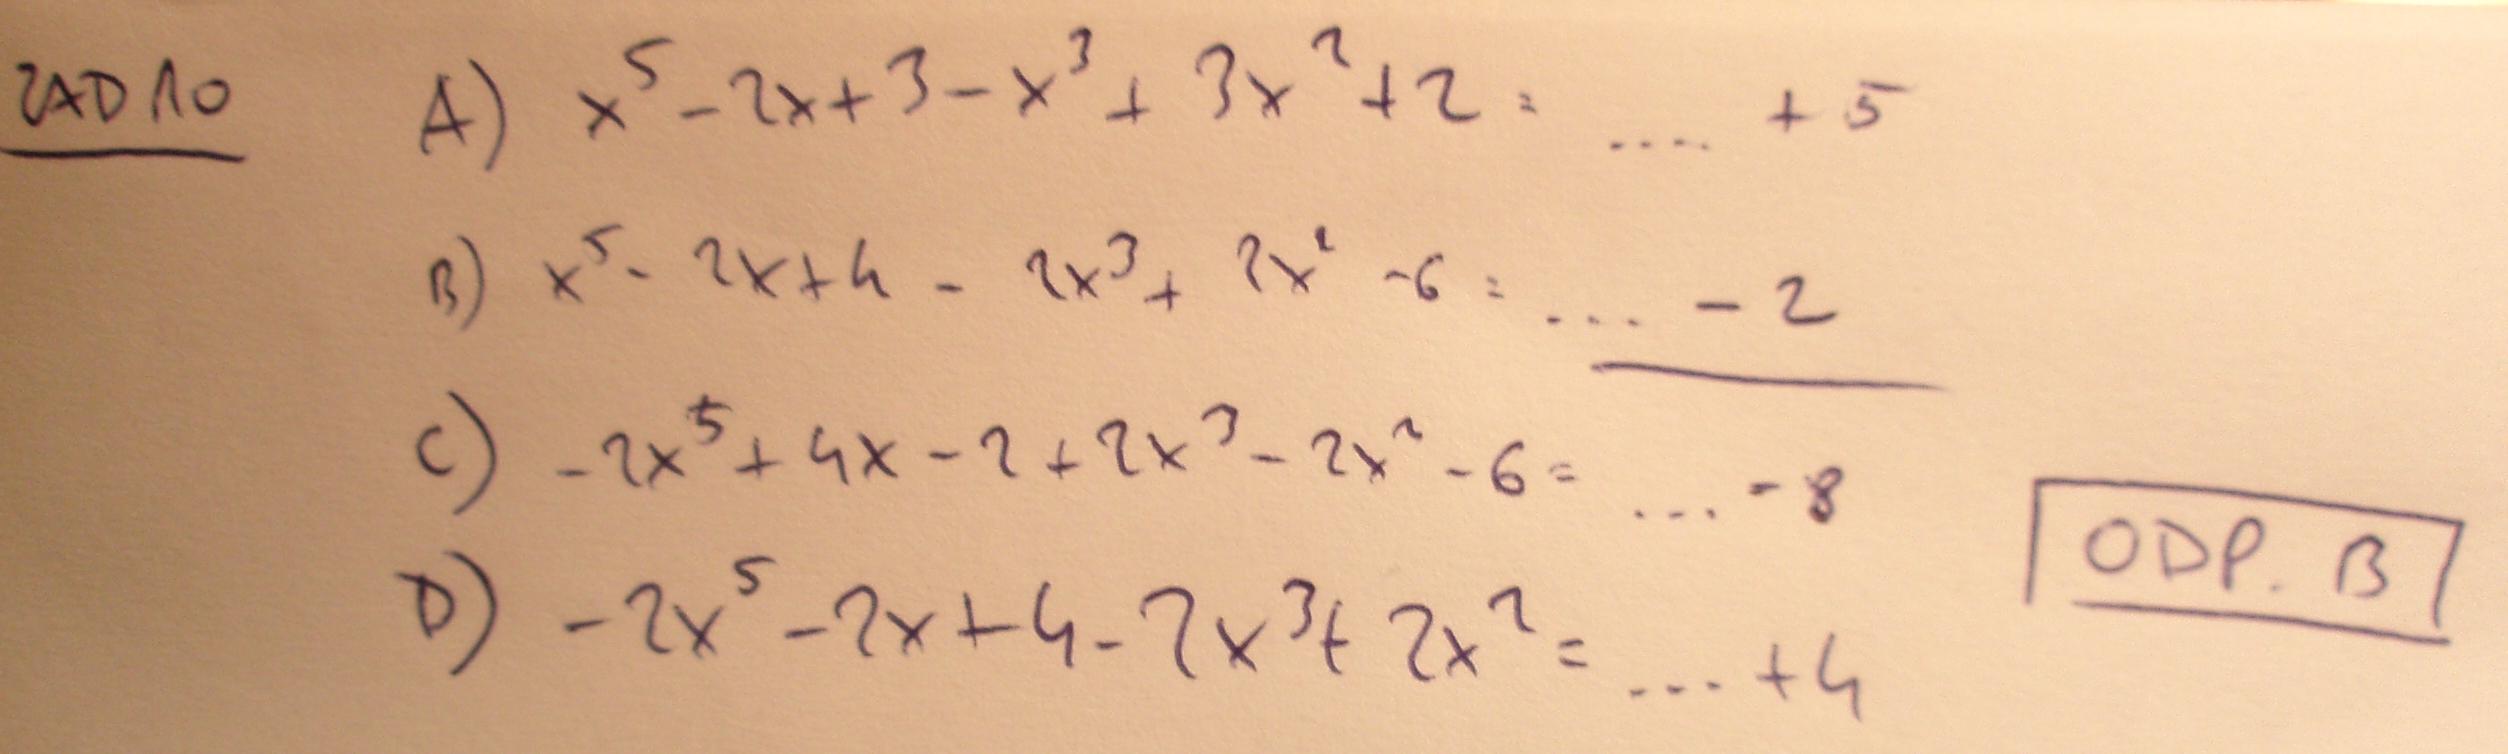 ZAD 10 A) x⁵ - 2x + 3 - x³ + 3x² + 2 = .... + 5
B) x⁵ - 2x + 4 - 2x³ + 2x² - 6 = .... - 2
C) -2x⁵ + 4x - 2 + 2x³ - 2x² - 6 = .... - 8
D) -2x⁵ - 2x + 4 - 2x³ + 2x² = .... + 4
ODP. B